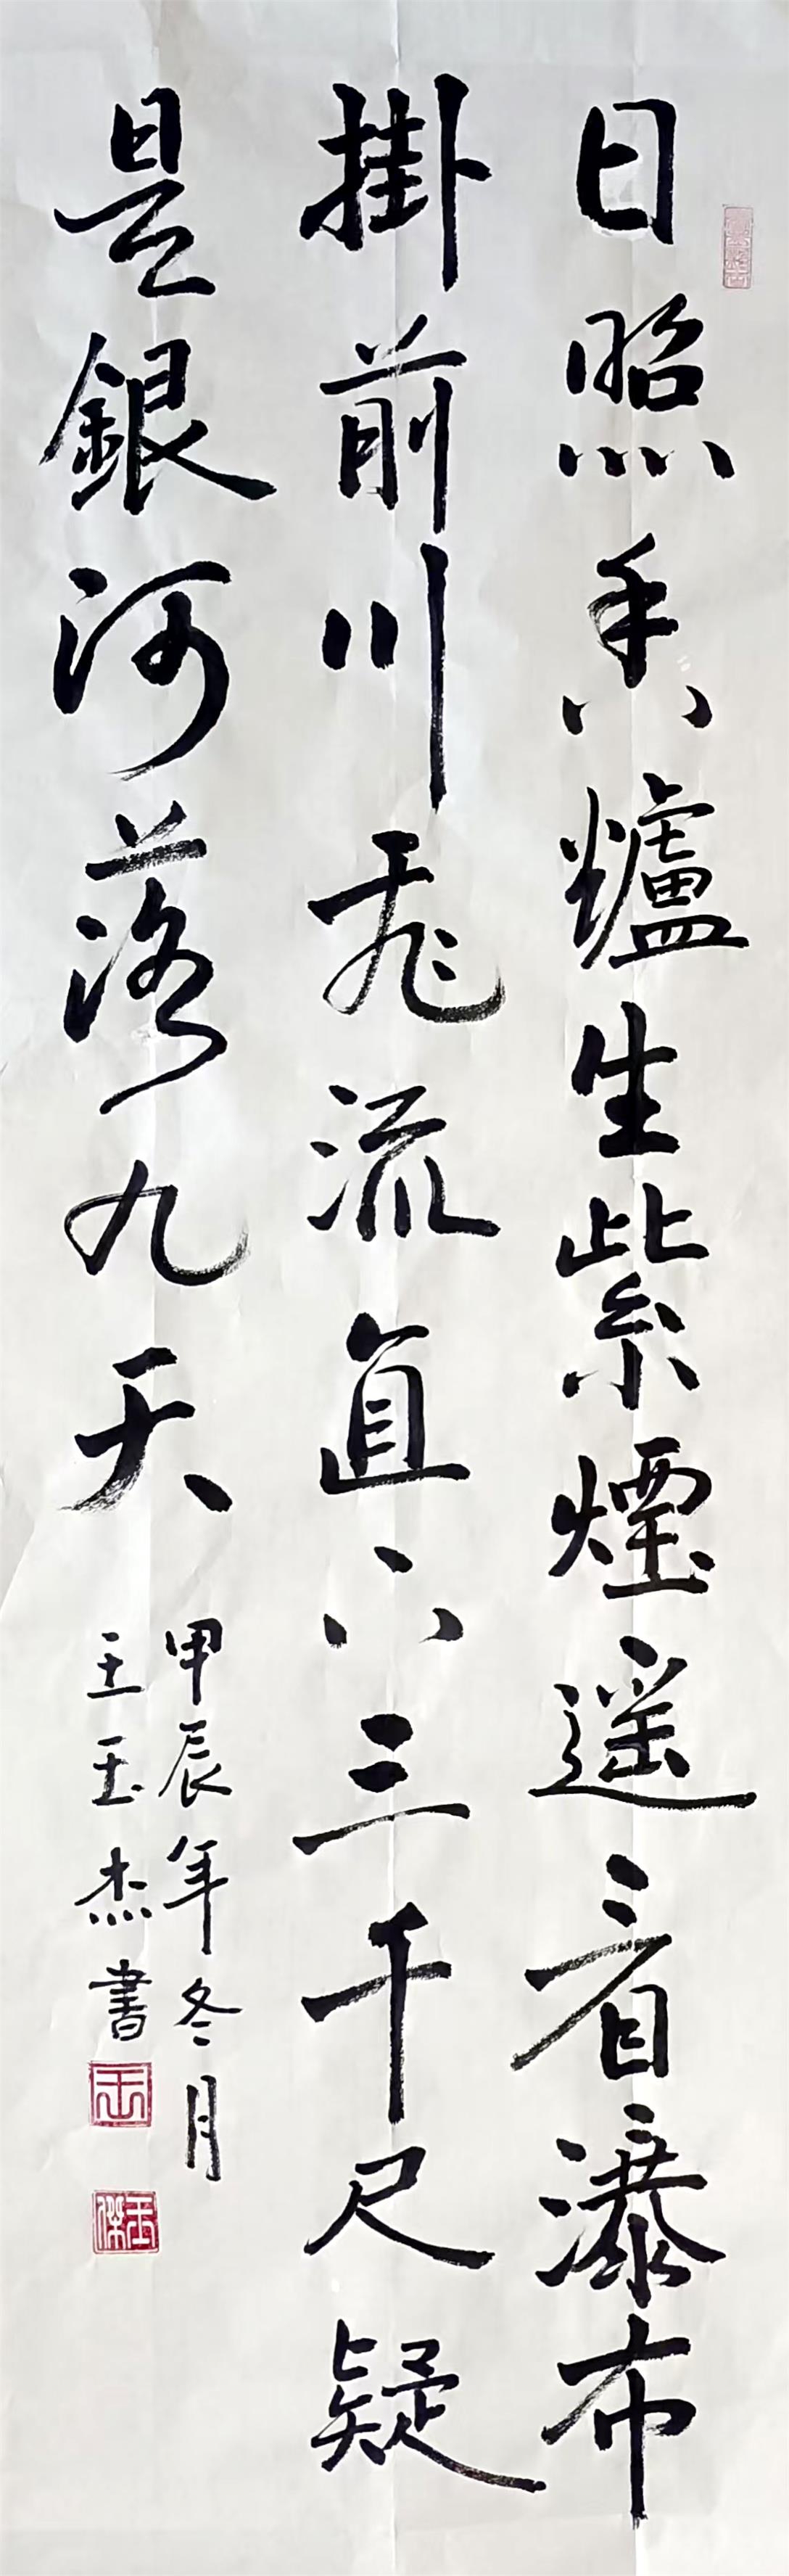 日照香爐生紫煙遥看瀑布
掛前川飛流直下三千尺疑
是銀河落九天
甲辰年冬月
王玉杰書
王
玉傑